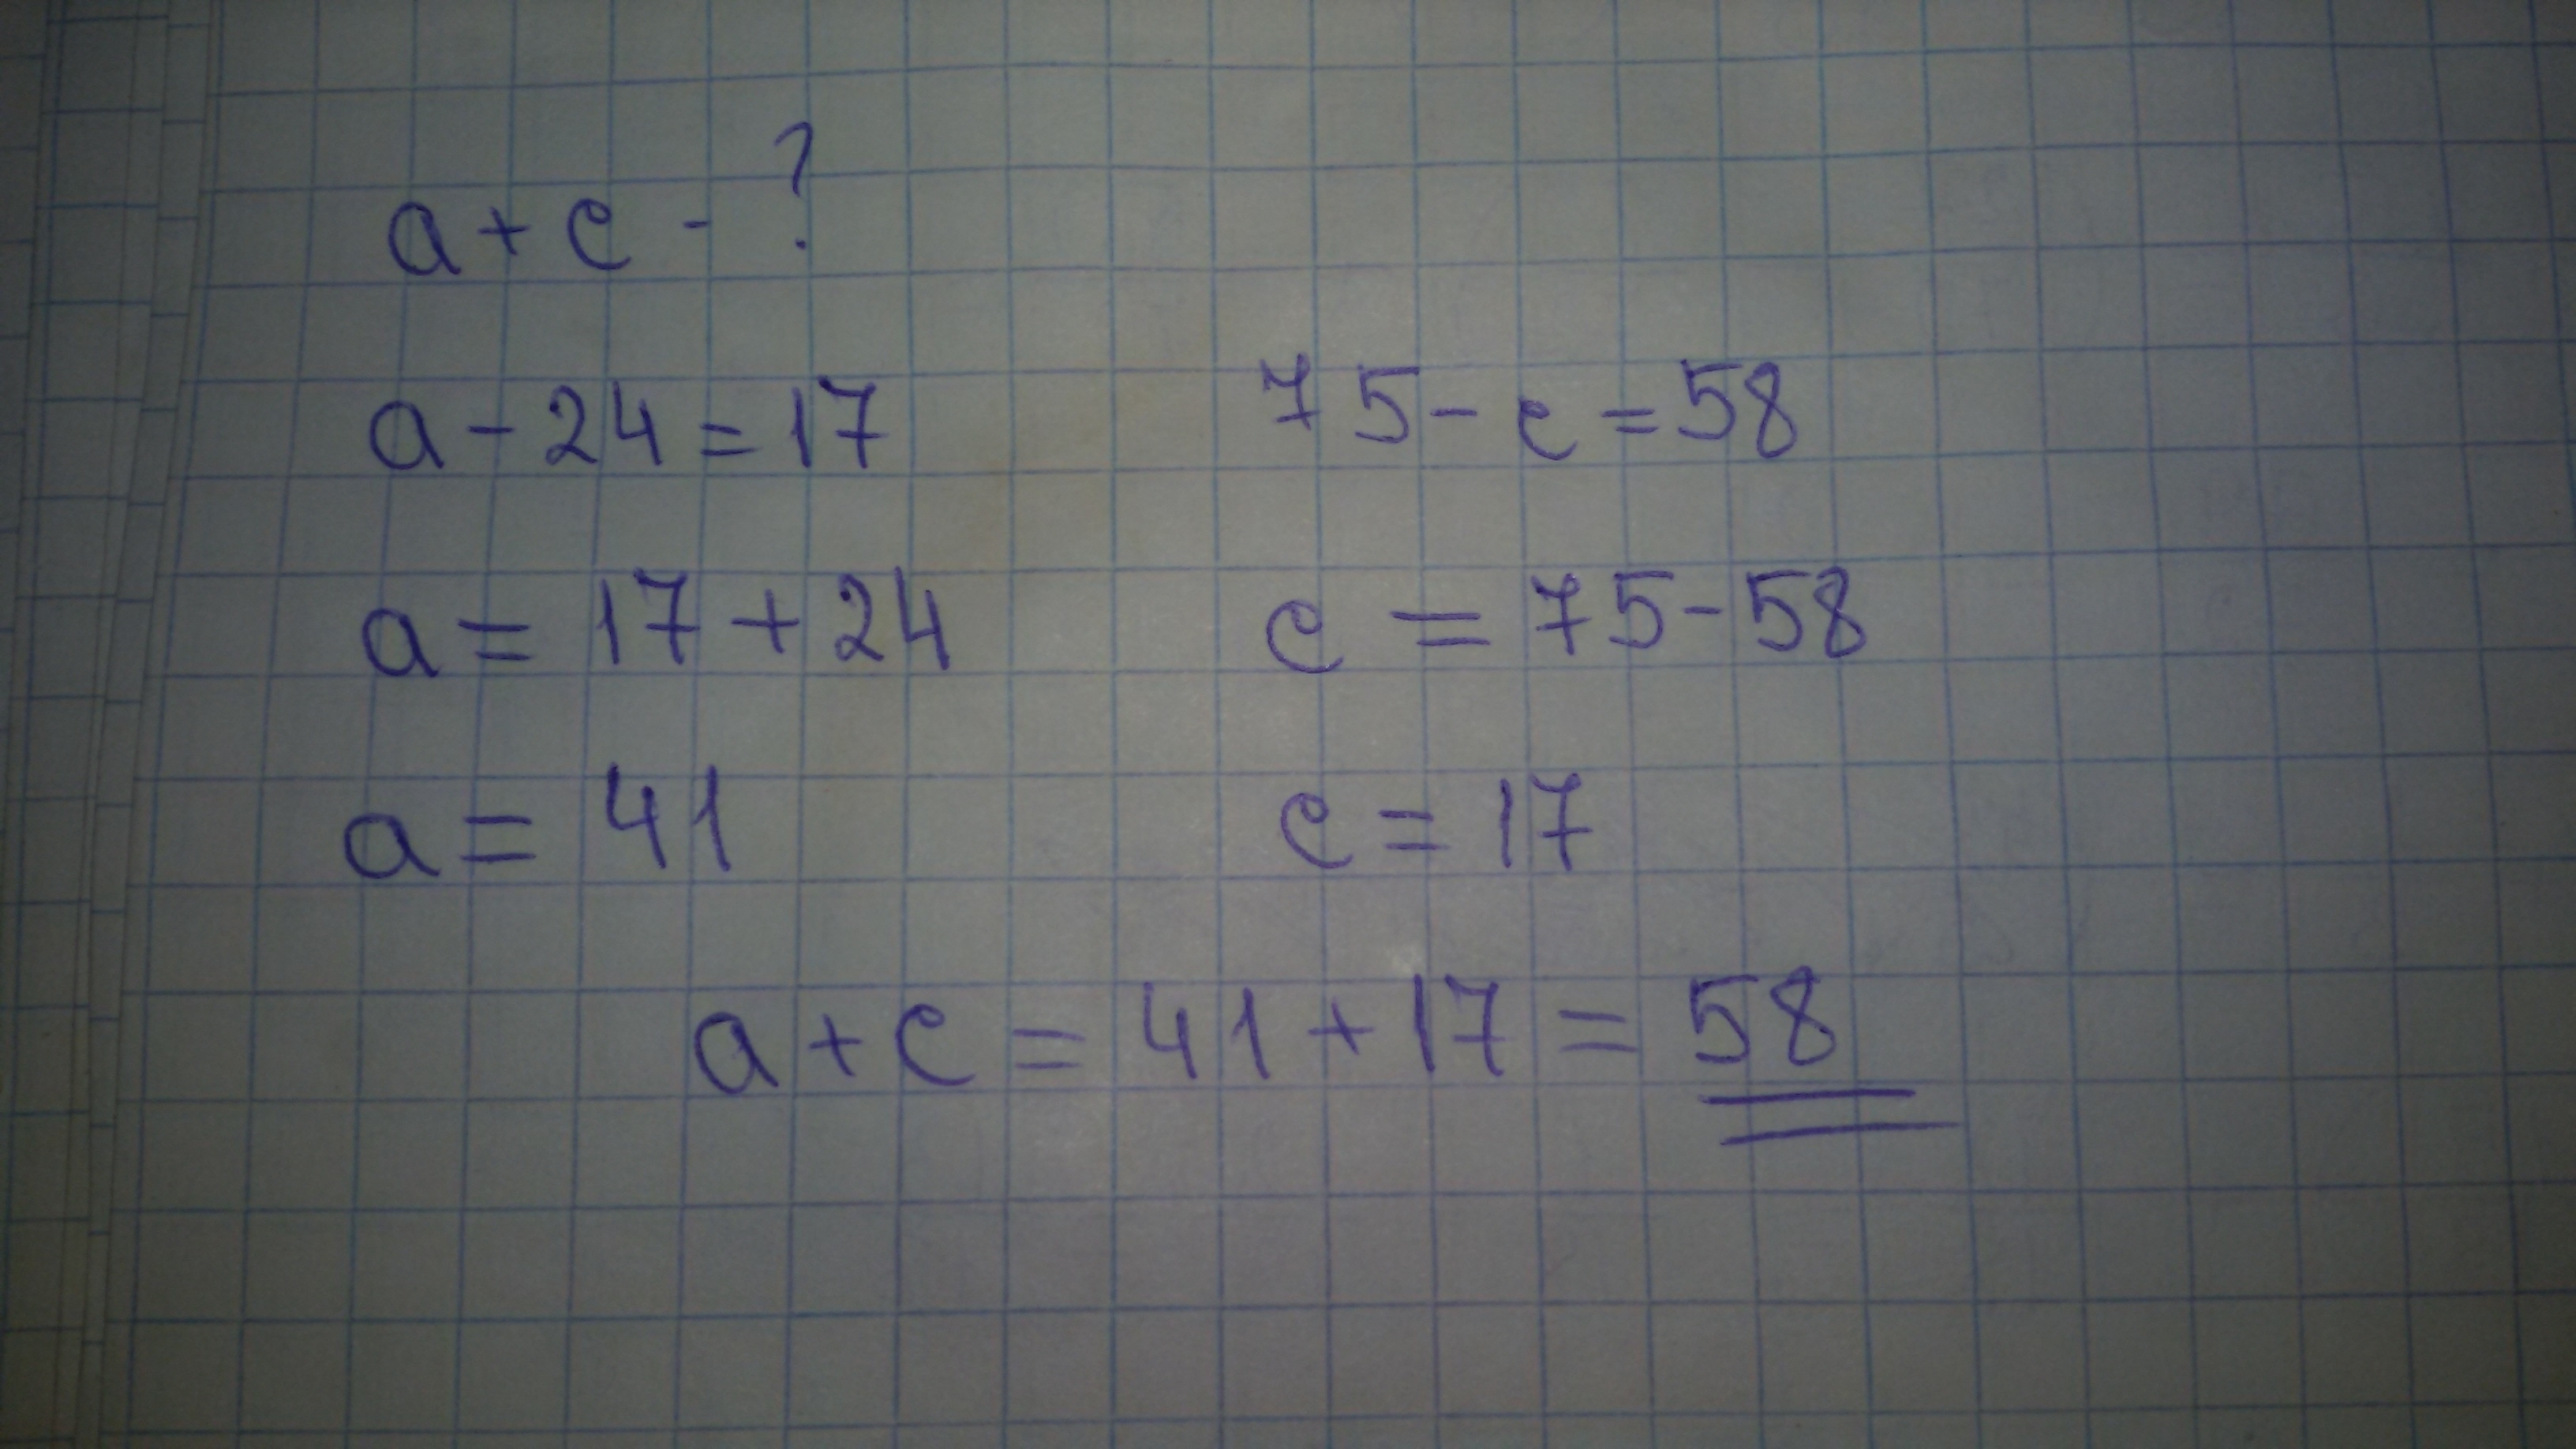 a + c - ?
a - 24 = 17 75 - c = 58
a = 17 + 24 c = 75 - 58
a = 41 c = 17
a + c = 41 + 17 = 58